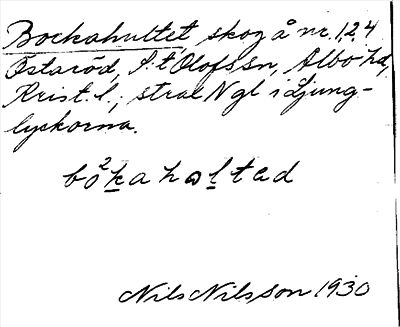 Bockahultet, skog å nr. 1, 2, 4
Östaröd, S:t Olofs sn, Albo hd,
Krist. l.; strax N gl i Ljung-
lyckorna.
bo²kahọltad
Nils Nilsson 1930